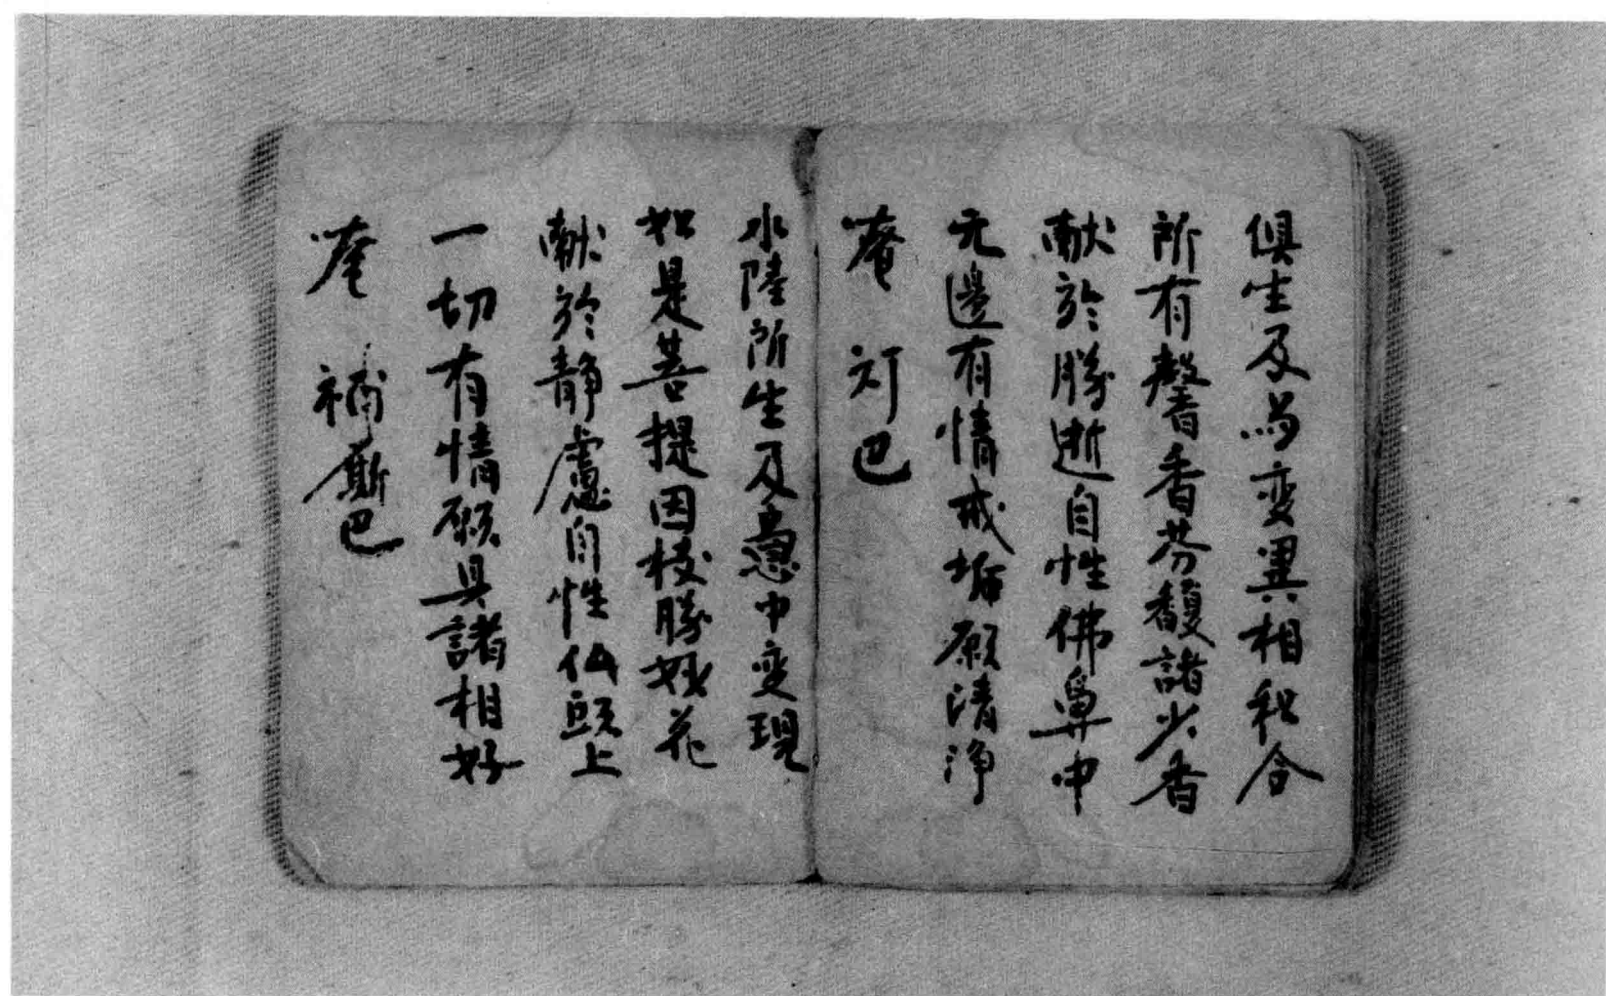 俱生及与变異相和合
所有馨香芬馥諸妙香
献於勝逝自性佛鼻中
无邊有情戒垢願清淨
唵　巴
水陸所生及意中变現
如是菩提因枝勝妙花
献於静慮自性仏頭上
一切有情願具諸相好
唵　補斯巴